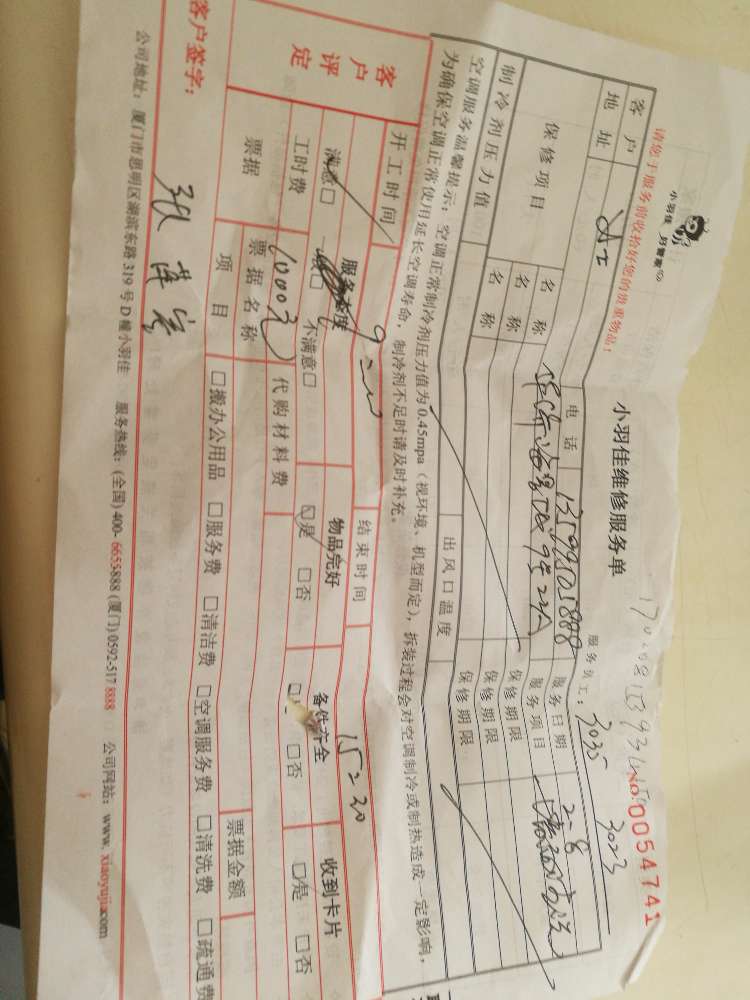 小羽佳 好管家
请您于服务前收拾好您的贵重物品！
小羽佳维修服务单
NO:0054741
服务员工：3035 3023
客户地址
电话 13599105888
服务日期 2.8
保修项目
名称
服务项目
名称
保修期限
名称
保修期限
制冷剂压力值
出风口温度
保修期限
空调服务温馨提示：空调正常制冷剂压力值为0.45mpa（视环境、机型而定），拆装过程会对空调制冷或制热造成一定影响，
为确保空调正常使用延长空调寿命，制冷剂不足时请及时补充。
开工时间 9
结束时间 15 30
客户评定
服务态度
物品完好
备件齐全
收到卡片
满意□
不满意□
□是 □否
□否
□是 □否
工时费 1000元
代购材料费
票据
票据名称
票据金额
项目
□搬办公用品 □服务费 □清洁费 □空调服务费 □清洗费 □疏通费
客户签字：
公司地址：厦门市思明区湖滨东路319号D幢小羽佳 服务热线：(全国)400-6655-888 (厦门)0592-5178888 公司网站：www.xiaoyujia.com